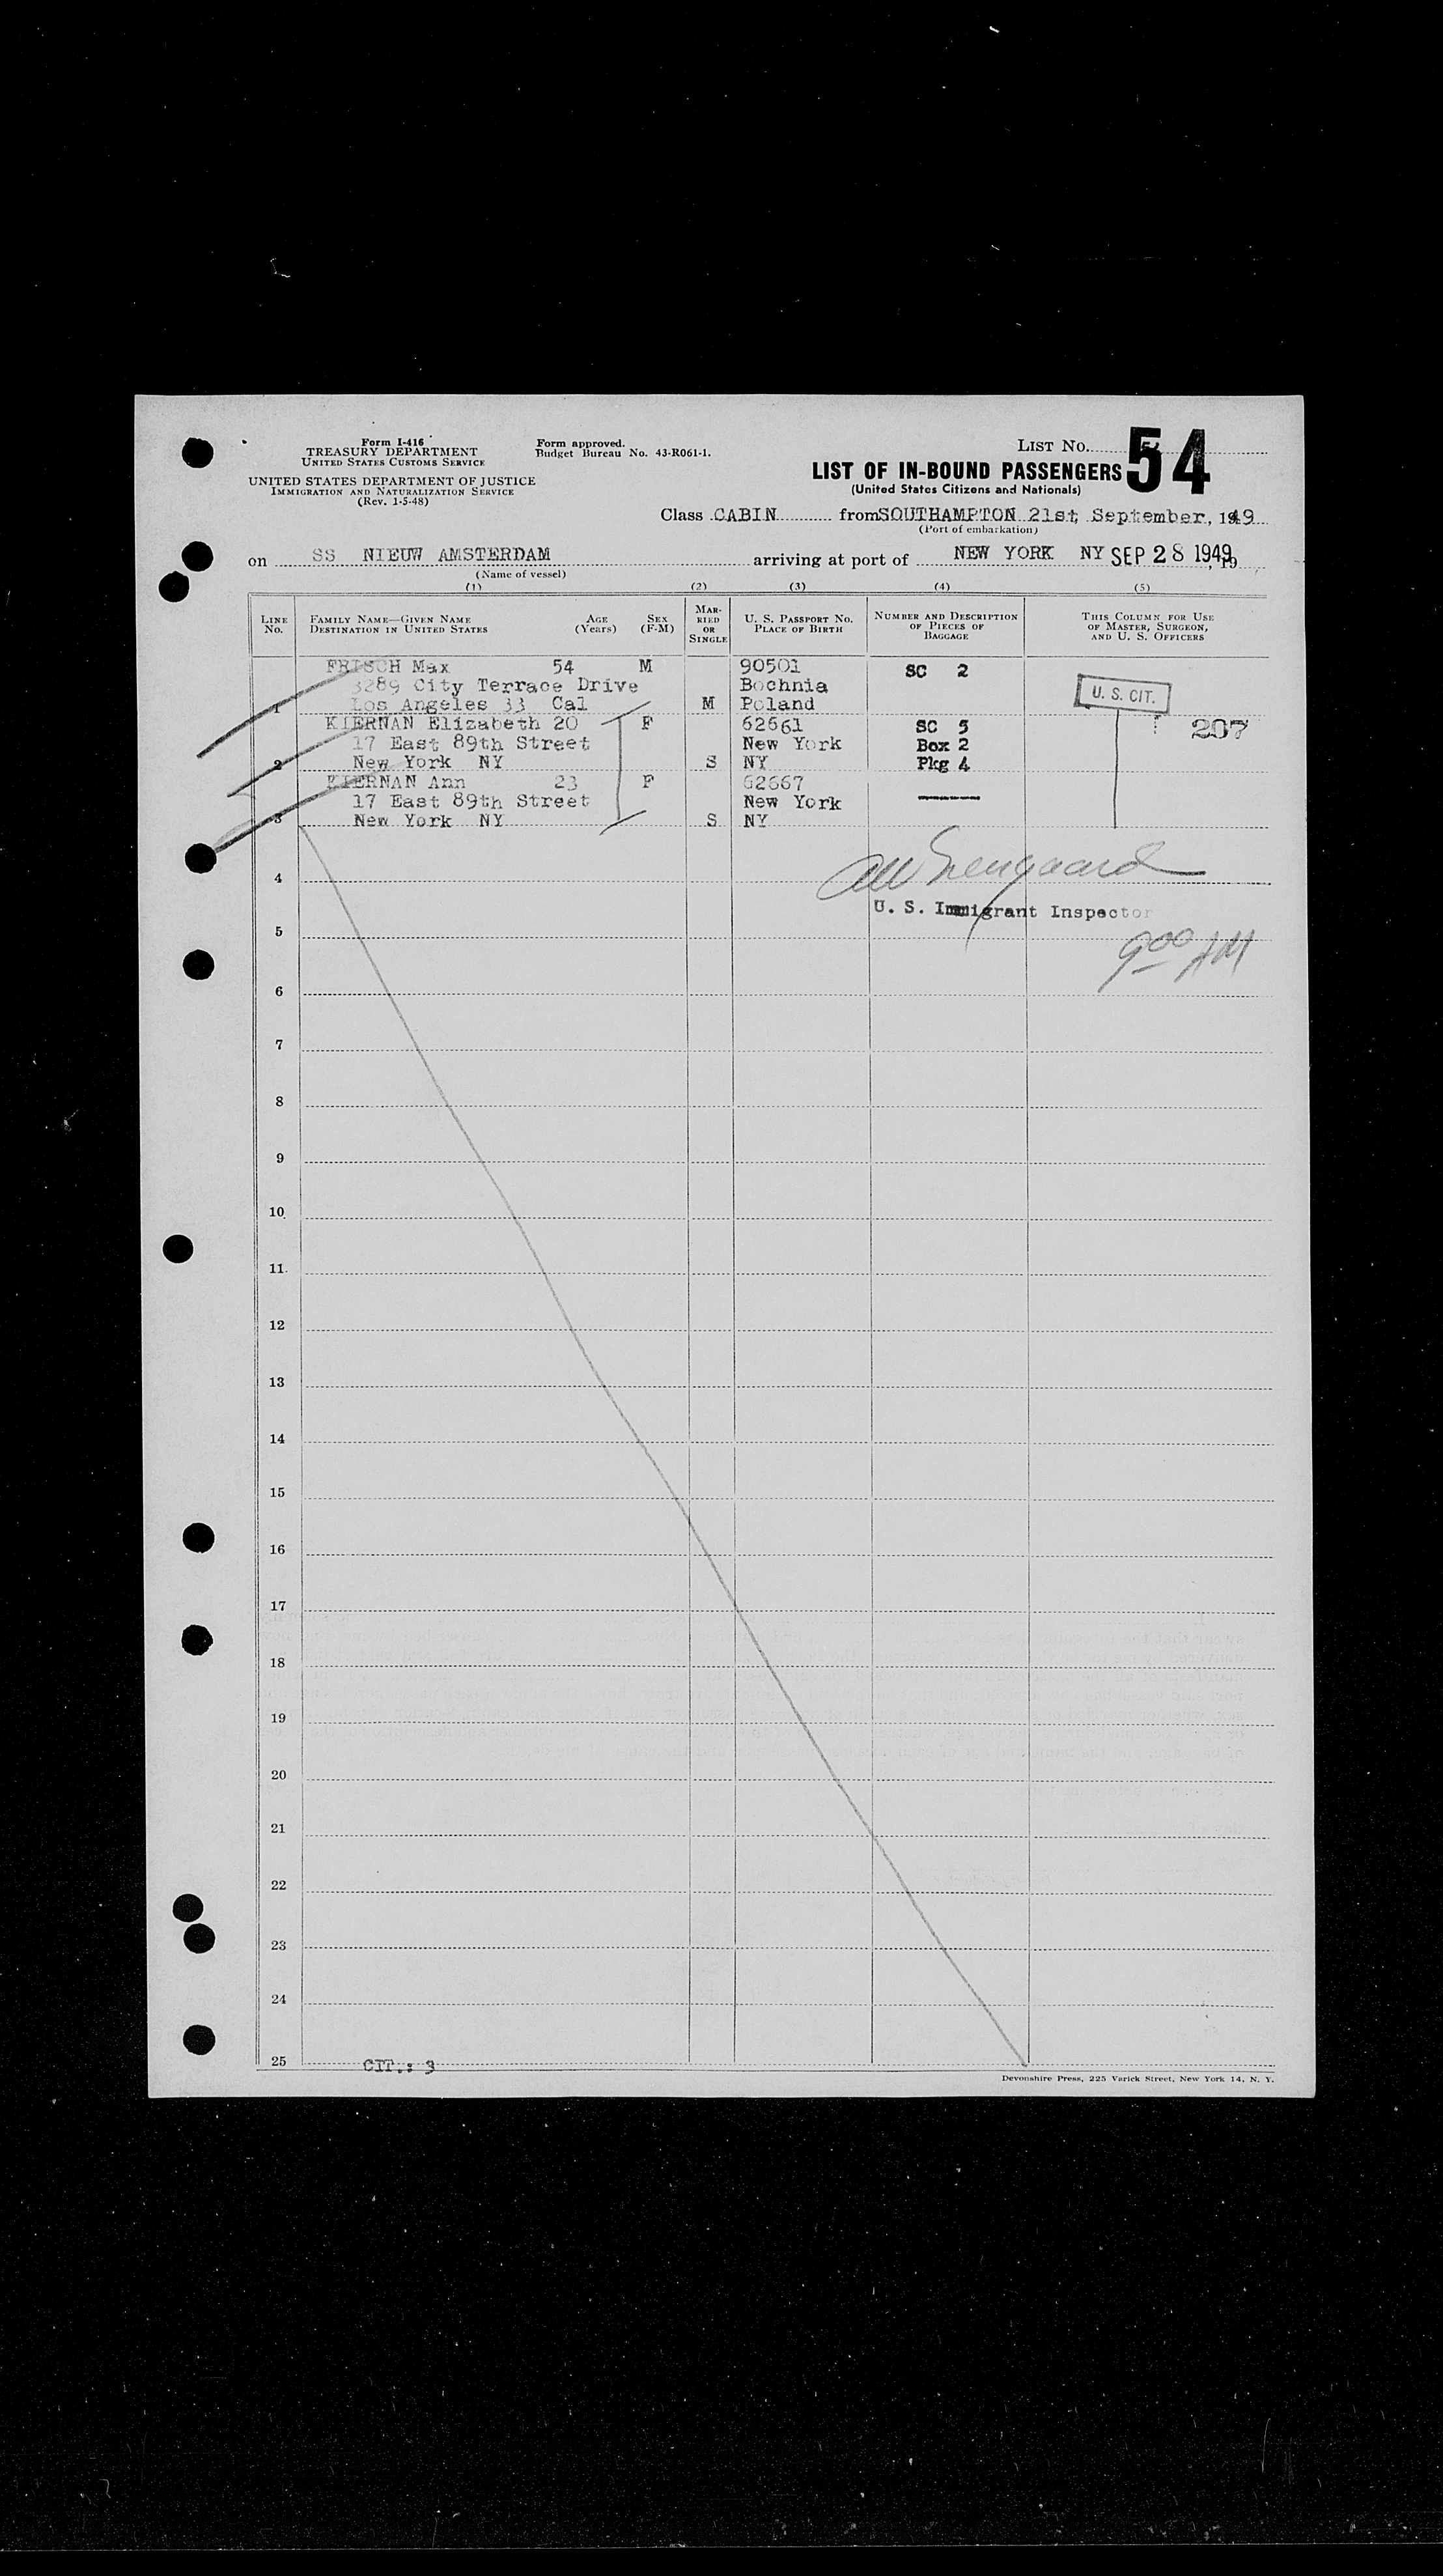 Form I-416
TREASURY DEPARTMENT
UNITED STATES CUSTOMS SERVICE
UNITED STATES DEPARTMENT OF JUSTICE
IMMIGRATION AND NATURALIZATION SERVICE
(Rev. 1-5-48)
Form approved.
Budget Bureau No. 43-R061-1.
LIST No. 54
LIST OF IN-BOUND PASSENGERS
(United States Citizens and Nationals)
Class CABIN from SOUTHAMPTON 21st September, 1949
(Port of embarkation)
on SS NIEUW AMSTERDAM arriving at port of NEW YORK NY SEP 28 1949, 19
(Name of vessel)
(1) (2) (3) (4) (5)
LINE No. FAMILY NAME—GIVEN NAME DESTINATION IN UNITED STATES AGE (Years) SEX (F-M) MARRIED OR SINGLE U. S. PASSPORT No. PLACE OF BIRTH NUMBER AND DESCRIPTION OF PIECES OF BAGGAGE THIS COLUMN FOR USE OF MASTER, SURGEON, AND U. S. OFFICERS
FRISCH Max 54 M 90501 SC 2
3289 City Terrace Drive Bochnia U. S. CIT.
1 Los Angeles 33 Cal M Poland
KIERNAN Elizabeth 20 F 62661 SC 5 207
17 East 89th Street New York Box 2
2 New York NY S NY Pkg 4
KIERNAN Ann 23 F 62667
17 East 89th Street New York
3 New York NY S NY
4
U. S. Immigrant Inspector
5
9 00 AM
6
7
8
9
10
11
12
13
14
15
16
17
18
19
20
21
22
23
24
25 CIT.: 3
Devonshire Press, 225 Varick Street, New York 14, N. Y.